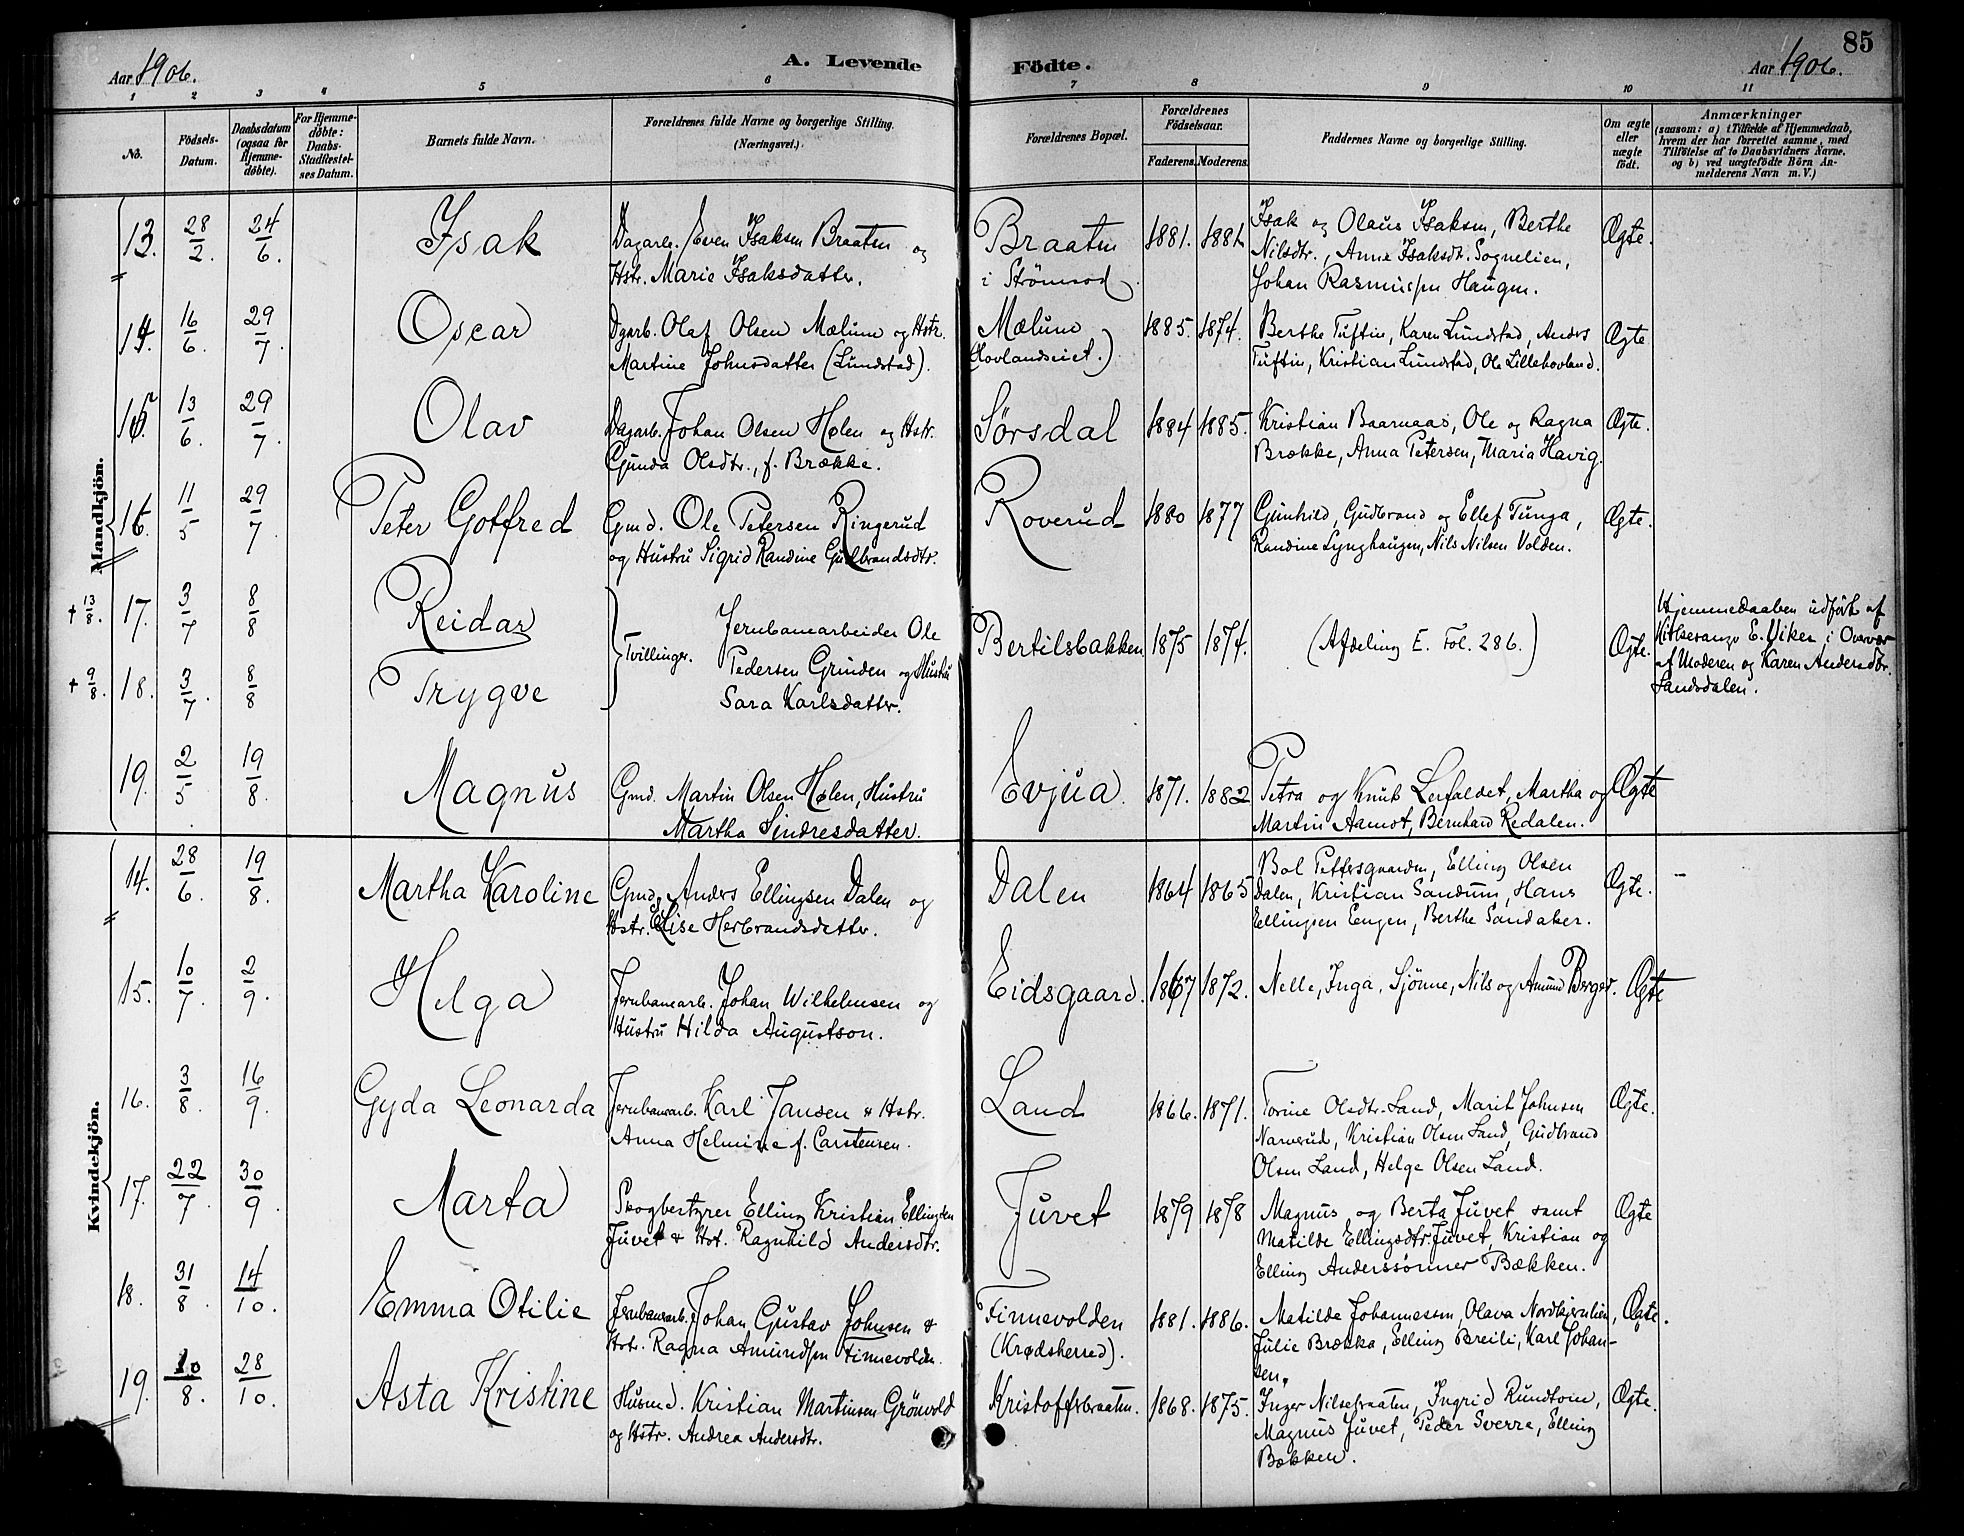 85
Aar 1906.
A. Levende Födte.
Aar 1906.
1 2 3 4 5 6 7 8 9 10 11
No.
Födsels-Datum.
Daabsdatum (ogsaa for Hjemme-døbte).
For Hjemme-døbte: Daabs-Stadfæstel-ses Datum.
Barnets fulde Navn.
Forældrenes fulde Navne og borgerlige Stilling.
(Næringsvei.)
Forældrenes Bopæl.
Forældrenes Födselsaar.
Faderens. Moderens.
Faddernes Navne og borgerlige Stilling.
Om ægte eller uægte födt.
Anmærkninger
(saasom: a) i Tilfælde af Hjemmedaab, hvem der har forrettet samme, med Tilføielse af to Daabsvidners Navne, og b) ved uægtefödte Börn An-melderens Navn m. V.)
Mandkjön.
13. 28/2. 24/6. Isak
Dagarb. Even Isaksen Braaten og
Hstr. Marie Isaksdatter.
Braaten
i Strömsod
1881. 1881
Isak og Olaus Isaksen, Berthe
Nilsdtr., Anne Isaksdt. Sognelien,
Johan Rasmussen Haugen.
Ægte.
14. 16/6. 29/7. Oscar
Dgarb. Olaf Olsen Mælum og Hstr.
Martine Johnsdatter (Lundstad).
Mælum
(Hovlandseiet.)
1885. 1874.
Berthe Tuftin, Karen Lundstad, Anders
Tuftin, Kristian Lundstad, Ole Lillehovland.
Ægte
15. 13/6. 29/7. Olav
Dagarb. Johan Olsen Holen og Hstr.
Gunda Olsdtr., f. Brække.
Sørsdal
1884 1885.
Kristian Baarnaas, Ole og Ragna
Brække, Anna Petersen, Maria Havig.
Ægte.
16. 11/5 29/7. Peter Gotfred
Gmd. Ole Petersen Ringerud
og Hustru Sigrid Randine Gulbrandsdtr.
Roverud
1880 1877
Gunhild, Gudbrand og Ellef Tunga,
Randine Lynghaugen, Nils Nilsen Volden.
Ægte.
† 13/8. 17. 3/7 8/8 Reidar
† 9/8. 18. 3/7. 8/8 Trygve
Tvillinger.
Jernbanearbeider Ole
Pedersen Grinden og Hustru
Sara Karlsdatter.
Bertilsbakken
1875 1874.
(Afdeling E. Fol. 286.)
Ægte.
Hjemmedaaben udført af
E. Viker i Overvær
af Moderen og Karen Andersdtr.
Sandsdalen.
19. 2/5 19/8. Magnus
Gmd. Martin Olsen Holen, Hustru
Martha Sindresdatter.
Evjua.
1871. 1882
Petra og Knut Lerfaldet, Martha og
Martin Aamot, Bernhard Redalen.
Ægte
Kvindekjön.
14. 28/6. 19/8. Martha Karoline
Gmd. Anders Ellingsen Dalen og
Hstr. Elise Herbrandsdatter.
Dalen
1864 1865
Bol Pettersgaarden, Elling Olsen
Dalen, Kristian Sandum, Hans
Ellingsen Engen, Berthe Sandaker.
Ægte.
15. 10/7. 2/9. Helga
Jernbanearb. Johan Wilhelmsen og
Hustru Hilda Augustson.
Eidsgaard.
1867 1872.
Nelle, Inga, Sjönne, Nils og Amund Berger.
Ægte
16. 3/8. 16/9. Gyda Leonarda
Jernbanearb. Karl Jansen & Hstr.
Anna Helmine f. Carstensen.
Land
1866. 1871.
Torine Olsdtr. Land, Marit Johnsen
Narverud, Kristian Olsen Land, Gudbrand
Olsen Land, Helge Olsen Land.
Ægte.
17. 22/7. 30/9. Marta
Skogbestyrer Elling Kristian Ellingsen
Juvet & Hst. Ragnhild Andersdtr.
Juvet
1879 1878
Magnus og Berta Juvet samt
Matilde Ellingsdtr. Juvet, Kristian og
Elling Anderssønner Bækken.
Ægte
18. 31/8. 14/10. Emma Otilie
Jernbanearb. Johan Gustav Johnsen &
Hstr. Ragna Amundsen Finnevolden.
Finnevolden
(Krødsherred).
1881. 1886.
Matilde Johannessen, Olava Nordbjernlien,
Julie Brække, Elling Breili, Karl Johan-
sen.
Ægte.
19. 10/8. 28/10. Asta Kristine
Husmd. Kristian Martinsen Grönvold
og Hstr. Andrea Andersdtr.
Kristoffersbraaten.
1868. 1875.
Inger Nilsebraaten, Ingrid Rundtom,
Magnus Juvet, Peder Sverre, Elling
Bækken.
Ægte.